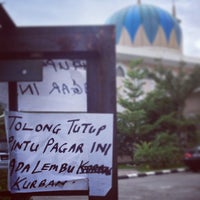 TOLONG TUTUP
PINTU PAGAR INI
ADA LEMBU
KURBAN